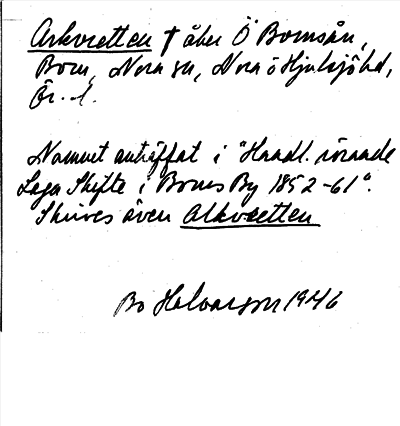 Arkvretten † åker Ö Bornsån,
Born, Nora sn, Nora o Hjulsjö bd,
Ör. l.
Namnet anträffat i "Handl. rörande
Laga Skifte i Borns By 1852-61".
Skrives även Alkvretten
Bo Halvarsson 1946